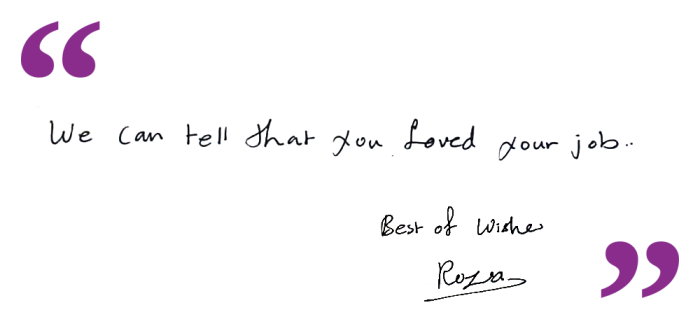 “
We can tell that you loved your job..
Best of Wishes
Roza
”